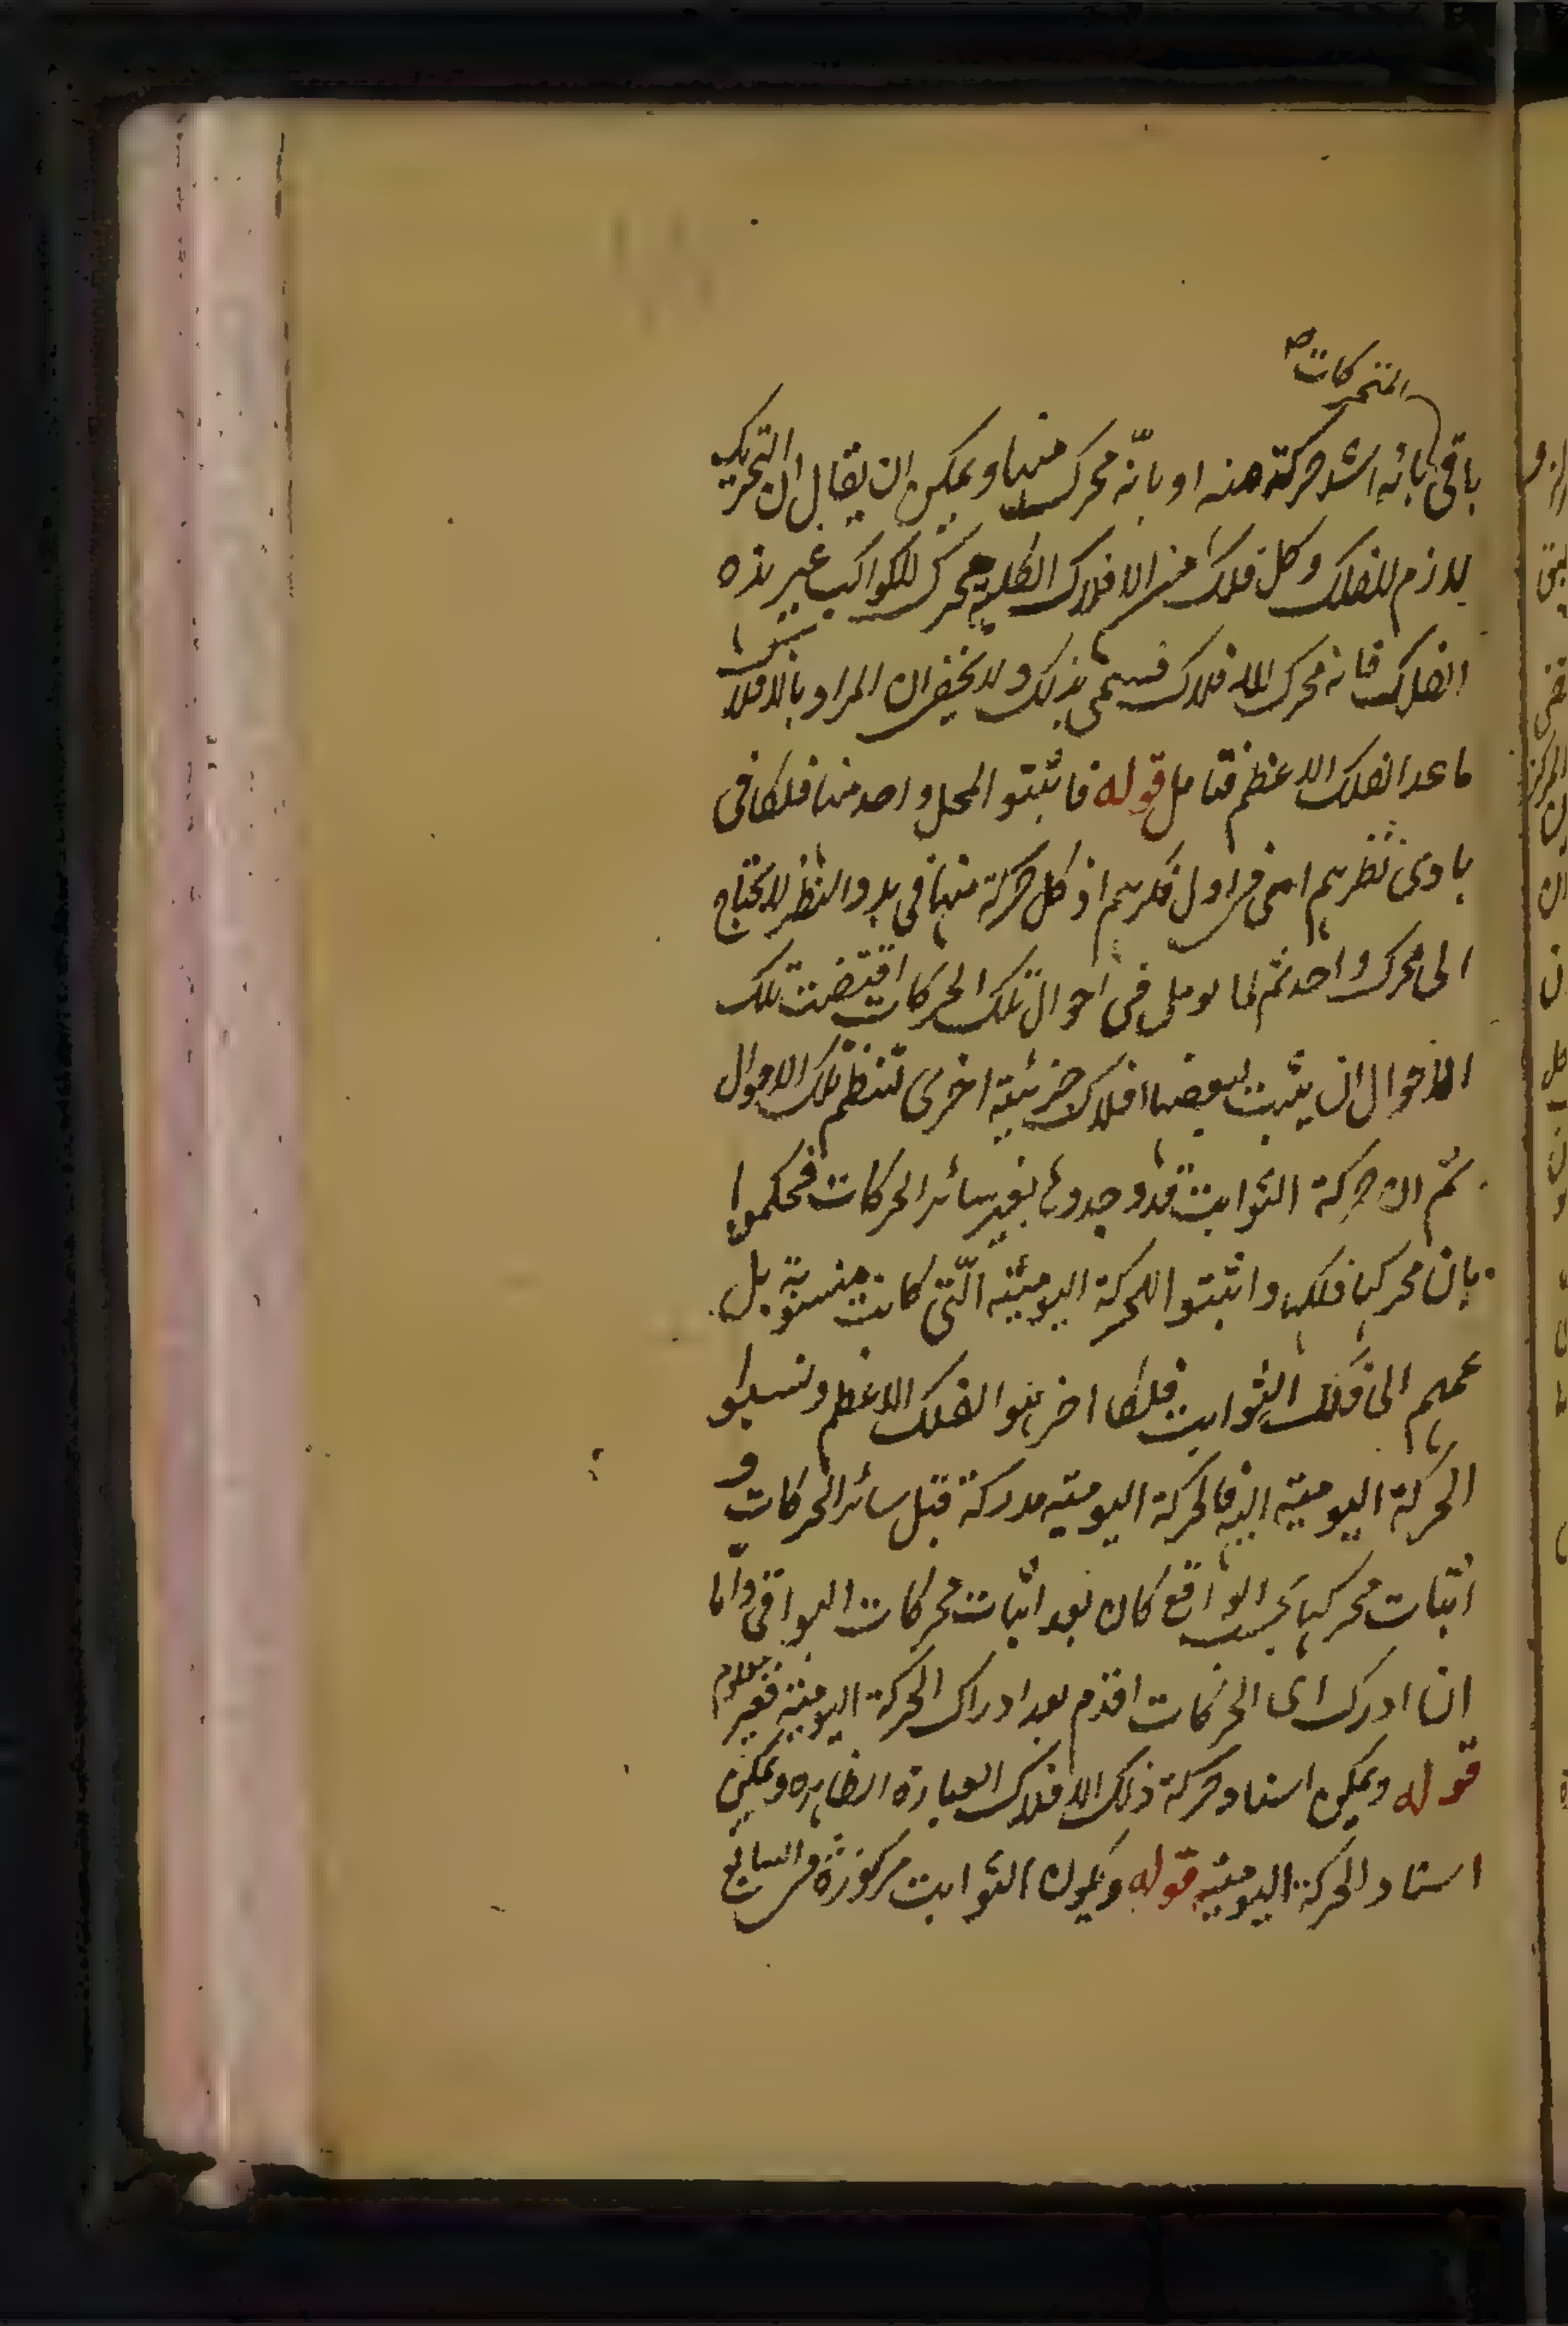 المتحركات صح
باقى بانه اشد حركة منه او بانّه محرك منها ويمكن ان يقال ان التحريك
لازم للفلك وكل فلك من الافلاك الكلية محرك للكواكب غير هذه
الفلك فانه محرك للافلاك فسمى بذلك ولا يخفى ان المراد بالافلاك
ماعدا الفلك الاعظم فتامل قوله فاثبتوا لكل واحد منها فلكا فى
بادى نظرهم اى فى اول فكرهم اذ كل حركة منها فى بدو النظر لا يحتاج
الى محرك واحد ثم لما توملى فى احوال تلك الحركات اقتضت تلك
الاحوال ان يثبت لبعضها افلاك جزئية اخرى تنظم تلك الاحوال
ثم ان حركة الثوابت قد وجدوها بغير سائر الحركات فحكموا
بان محركها فلك واثبتوا للحركة اليومية الّتى كانت منسوبة بل
عمهم الى فلك الثوابت فلكا اخر هو الفلك الاعظم ونسبوا
الحركة اليومية اليه فالحركة اليومية مدركة قبل سائر الحركات و
اثبات محركها بحسب الواقع كان بعد اثبات محركات البواقى واما
ان ادرك اى الحركات اقدم بعد ادراك الحركة اليومية فغير معلوم
قوله ويمكن اسناد حركة ذلك الافلاك العبارة الظاهره ويمكن
اسناد الحركة اليومية قوله ويكون الثوابت مركوزة فى السابع